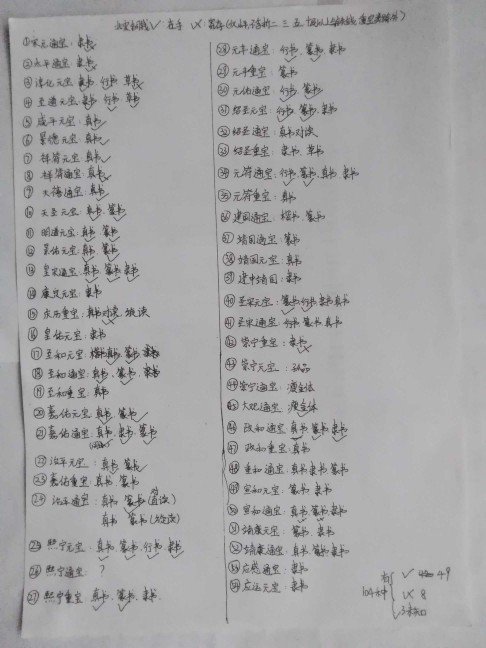 北宋
①宋元通宝: 隶书
②太平通宝: 隶书
③淳化元宝 真书 行书 草书
④至道元宝: 真书 行书 草书
⑤咸平元宝: 真书
⑥景德元宝: 真书
⑦祥符元宝: 真书
⑧祥符通宝: 真书
⑨天禧通宝: 真书
⑩天圣元宝: 真书 篆书
⑪明道元宝: 真书 篆书
⑫景佑元宝: 真书 篆书
⑬皇宋通宝: 真书 篆书 隶书
⑭康定元宝: 隶书
⑮庆历重宝: 真书对读, 旋读
⑯皇佑元宝: 隶书
⑰至和元宝: 真书 篆书 隶书
⑱至和通宝: 真书 篆书 隶书
⑲至和重宝 真书
⑳嘉佑元宝 真书 篆书
㉑嘉佑通宝: 真书 隶书 篆书
㉒治平元宝: 真书 篆书
㉓嘉佑重宝: 真书 篆书
㉔治平通宝: 真书 篆书 (直读)
真书 篆书 (旋读)
㉕熙宁元宝: 真书 篆书 行书 隶书
㉖熙宁通宝: ?
㉗熙宁重宝 真书 篆书 隶书
㉘元丰通宝: 行书 篆书 隶书
㉙元丰重宝: 篆书
㉚元佑通宝: 行书 篆书
㉛绍圣元宝: 行书 篆书 隶书
㉜绍圣通宝: 真书对读
㉝绍圣重宝: 隶书 草书
㉞元符通宝: 行书 篆书 真书 隶书
㉟元符重宝: 真书
㊱建国通宝: 楷书 篆书
㊲靖国通宝: 篆书
㊳靖国元宝: 真书
㊴建中靖国: 隶书
㊵圣宋元宝: 篆书 行书 隶书 真书
㊶圣宋通宝: 行书 篆书 真书
㊷崇宁重宝: 隶书
㊸崇宁元宝: 孤品
㊹崇宁通宝: 瘦金体
㊺大观通宝: 瘦金体
㊻政和通宝 真书 篆书 隶书
㊼政和重宝: 真书
㊽重和通宝: 真书 隶书 篆书
㊾宣和元宝: 篆书 隶书
㊿宣和通宝: 真书 篆书 隶书
51 靖康元宝: 篆书 隶书
52 靖康通宝: 真书 篆书 隶书
53 应感通宝: 真书
54 应运元宝: 隶书
有 ✓ 49
104种 ✓× 8